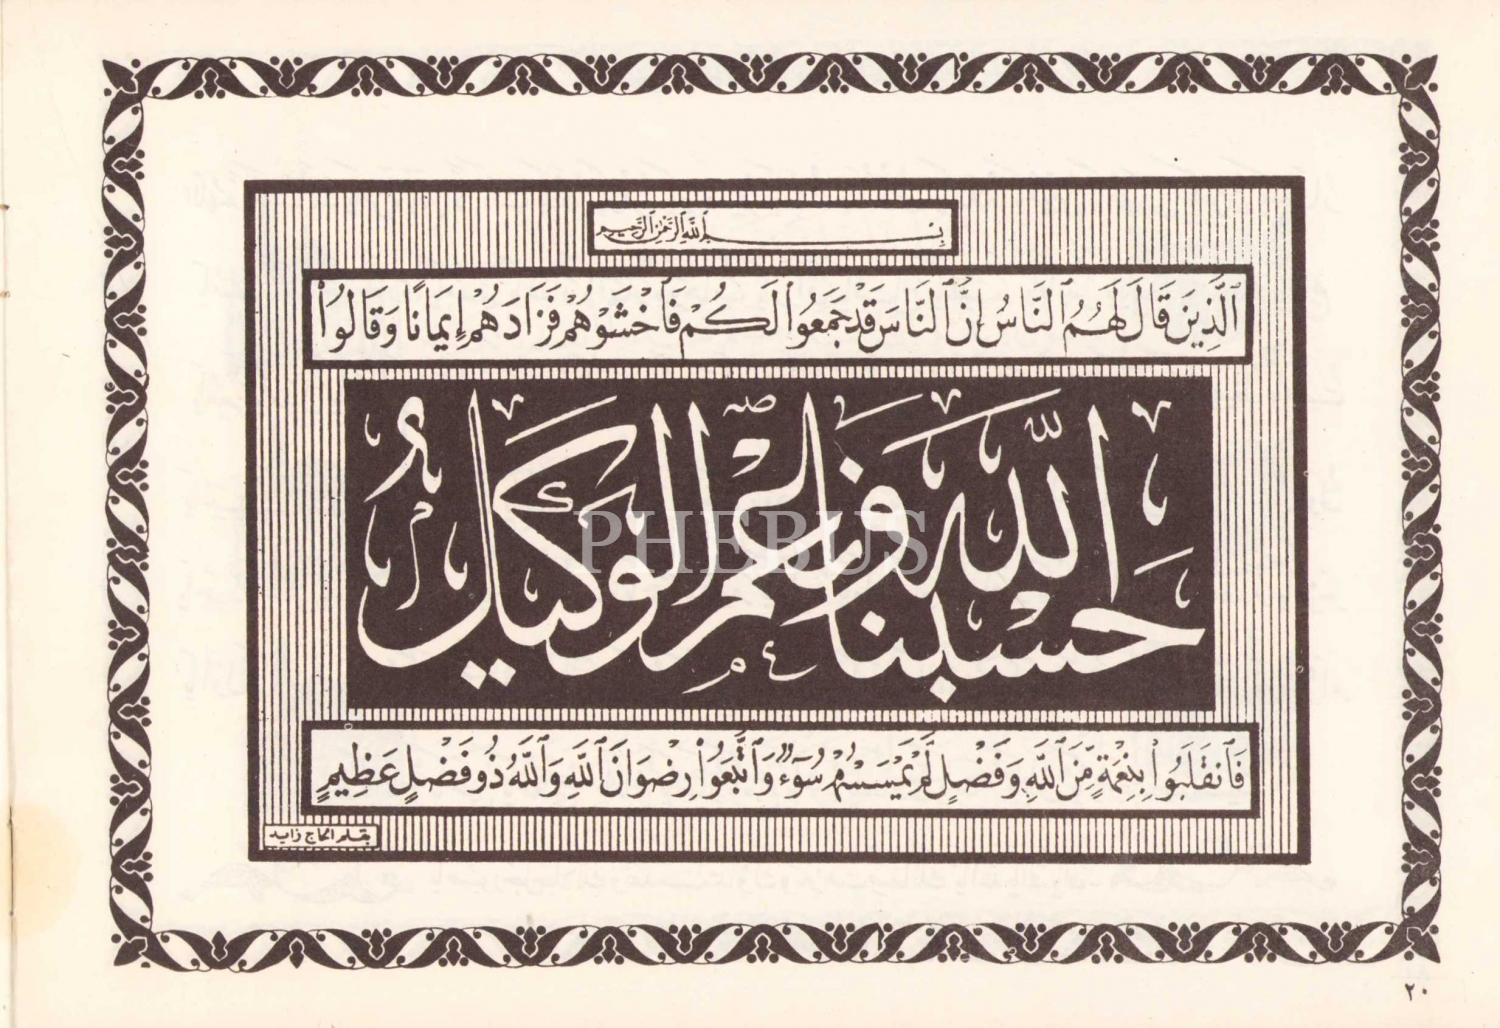 بِسْمِ ٱللَّهِ ٱلرَّحْمَٰنِ ٱلرَّحِيمِ
ٱلَّذِينَ قَالَ لَهُمُ ٱلنَّاسُ إِنَّ ٱلنَّاسَ قَدْ جَمَعُوا۟ لَكُمْ فَٱخْشَوْهُمْ فَزَادَهُمْ إِيمَانًا وَقَالُوا۟
حسبنا الله ونعم الوكيل
PHEBUS
فَٱنقَلَبُوا۟ بِنِعْمَةٍ مِّنَ ٱللَّهِ وَفَضْلٍ لَّمْ يَمْسَسْهُمْ سُوٓءٌ وَٱتَّبَعُوا۟ رِضْوَانَ ٱللَّهِ وَٱللَّهُ ذُو فَضْلٍ عَظِيمٍ
بقلم الحاج زايد
٢٠